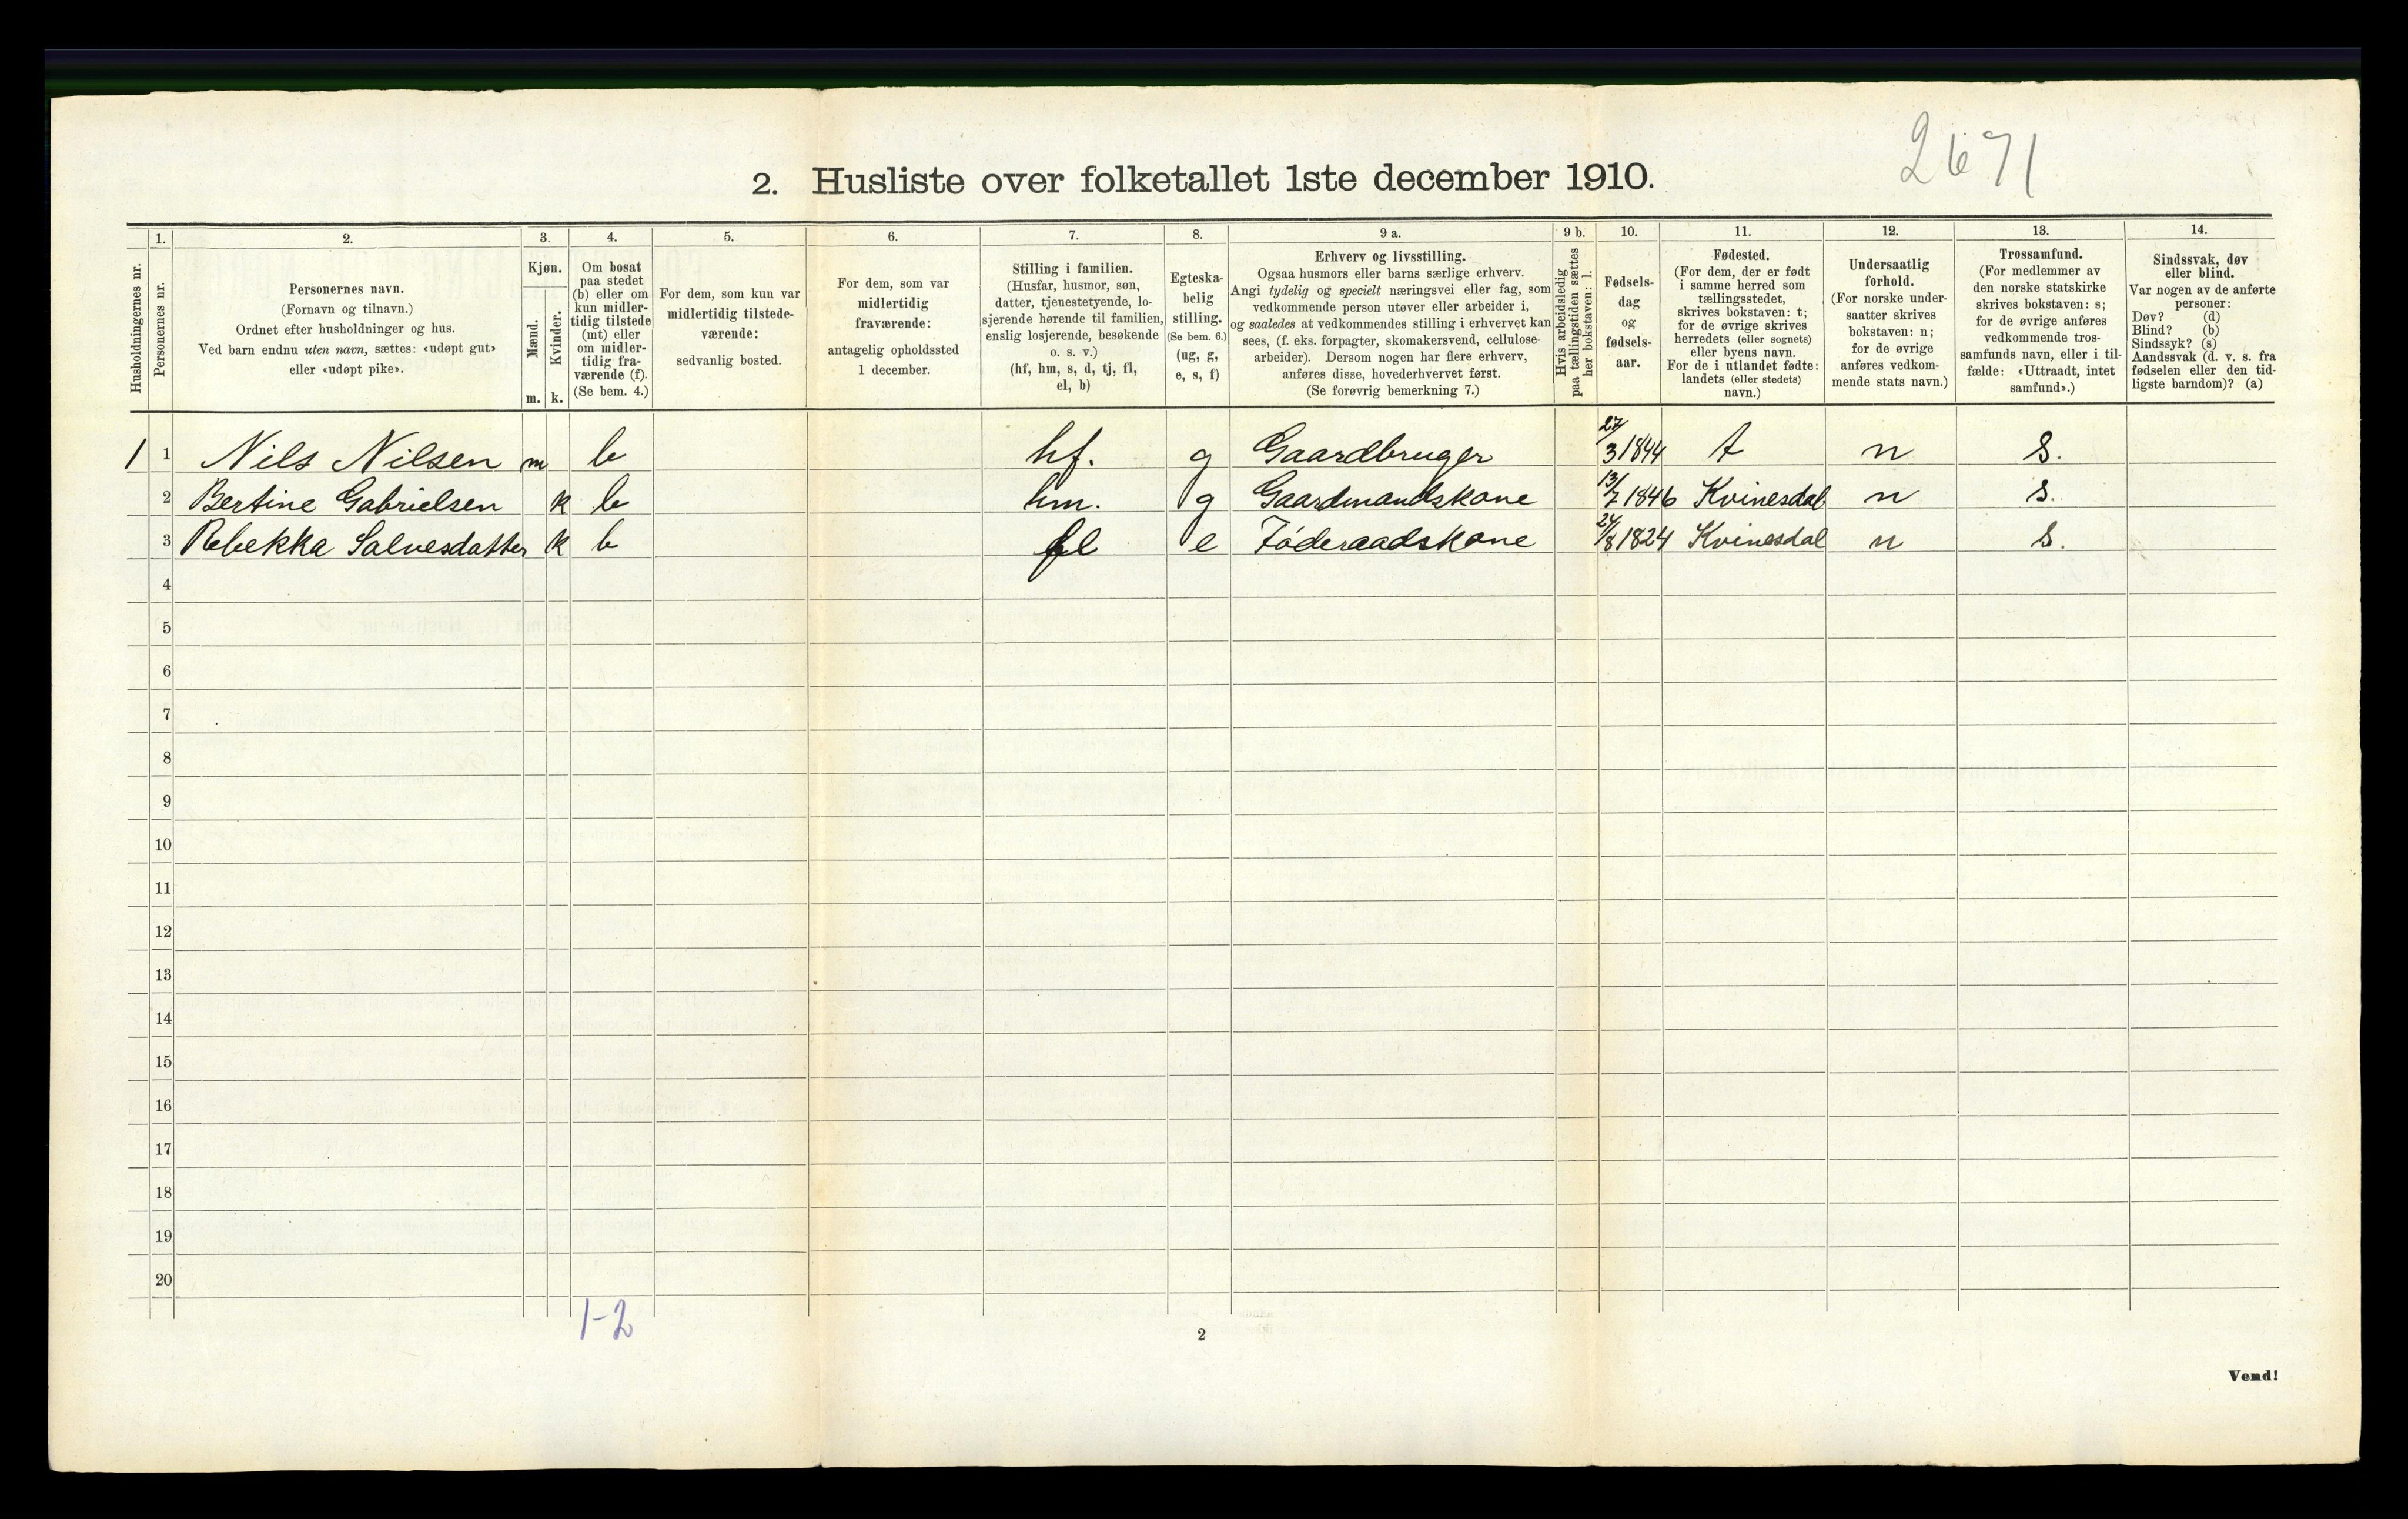 2671
2. Husliste over folketallet 1ste december 1910.
Husholdningernes nr.
1.
Personernes nr.
2.
Personernes navn.
(Fornavn og tilnavn.)
Ordnet efter husholdninger og hus.
Ved barn endnu uten navn, sættes: «udøpt gut»
eller «udøpt pike».
3.
Kjøn.
Mænd.
Kvinder.
m. k.
4.
Om bosat
paa stedet
(b) eller om
kun midler-
tidig tilstede
(mt) eller
om midler-
tidig fra-
værende (f).
(Se bem. 4.)
5.
For dem, som kun var
midlertidig tilstede-
værende:
sedvanlig bosted.
6.
For dem, som var
midlertidig
fraværende:
antagelig opholdssted
1 december.
7.
Stilling i familien.
(Husfar, husmor, søn,
datter, tjenestetyende, lo-
sjerende hørende til familien,
enslig losjerende, besøkende
o. s. v.)
(hf, hm, s, d, tj, fl,
el, b)
8.
Egteska-
belig
stilling.
(Se bem. 6.)
(ug, g,
e, s, f)
9 a.
Erhverv og livsstilling.
Ogsaa husmors eller barns særlige erhverv.
Angi tydelig og specielt næringsvei eller fag, som
vedkommende person utøver eller arbeider i,
og saaledes at vedkommendes stilling i erhvervet kan
sees, (f. eks. forpagter, skomakersvend, cellulose-
arbeider). Dersom nogen har flere erhverv,
anføres disse, hovederhvervet først.
(Se forøvrig bemerkning 7.)
9 b.
Hvis arbeidsledig
paa tællingstiden sættes
her bokstaven: l.
10.
Fødsels-
dag
og
fødsels-
aar.
11.
Fødested.
(For dem, der er født
i samme herred som
tællingsstedet,
skrives bokstaven: t;
for de øvrige skrives
herredets (eller sognets)
eller byens navn.
For de i utlandet fødte:
landets (eller stedets)
navn.)
12.
Undersaatlig
forhold.
(For norske under-
saatter skrives
bokstaven: n;
for de øvrige
anføres vedkom-
mende stats navn.)
13.
Trossamfund.
(For medlemmer av
den norske statskirke
skrives bokstaven: s;
for de øvrige anføres
vedkommende tros-
samfunds navn, eller i til-
fælde: «Uttraadt, intet
samfund».)
14.
Sindssvak, døv
eller blind.
Var nogen av de anførte
personer:
Døv? (d)
Blind? (b)
Sindssyk? (s)
Aandssvak (d. v. s. fra
fødselen eller den tid-
ligste barndom)? (a)
1 1 Nils Nilsen m b hf. g Gaardbruger 27/3 1844 t n s.
2 Bertine Gabrielsen k b hm. g Gaardmandskone 13/7 1846 Kvinesdal n s.
3 Rebekka Salvesdatter k b fl e Føderaadskone 24/8 1824 Kvinesdal n s.
4
5
6
7
8
9
10
11
12
13
14
15
16
17
18
19
20
1-2
2
Vend!